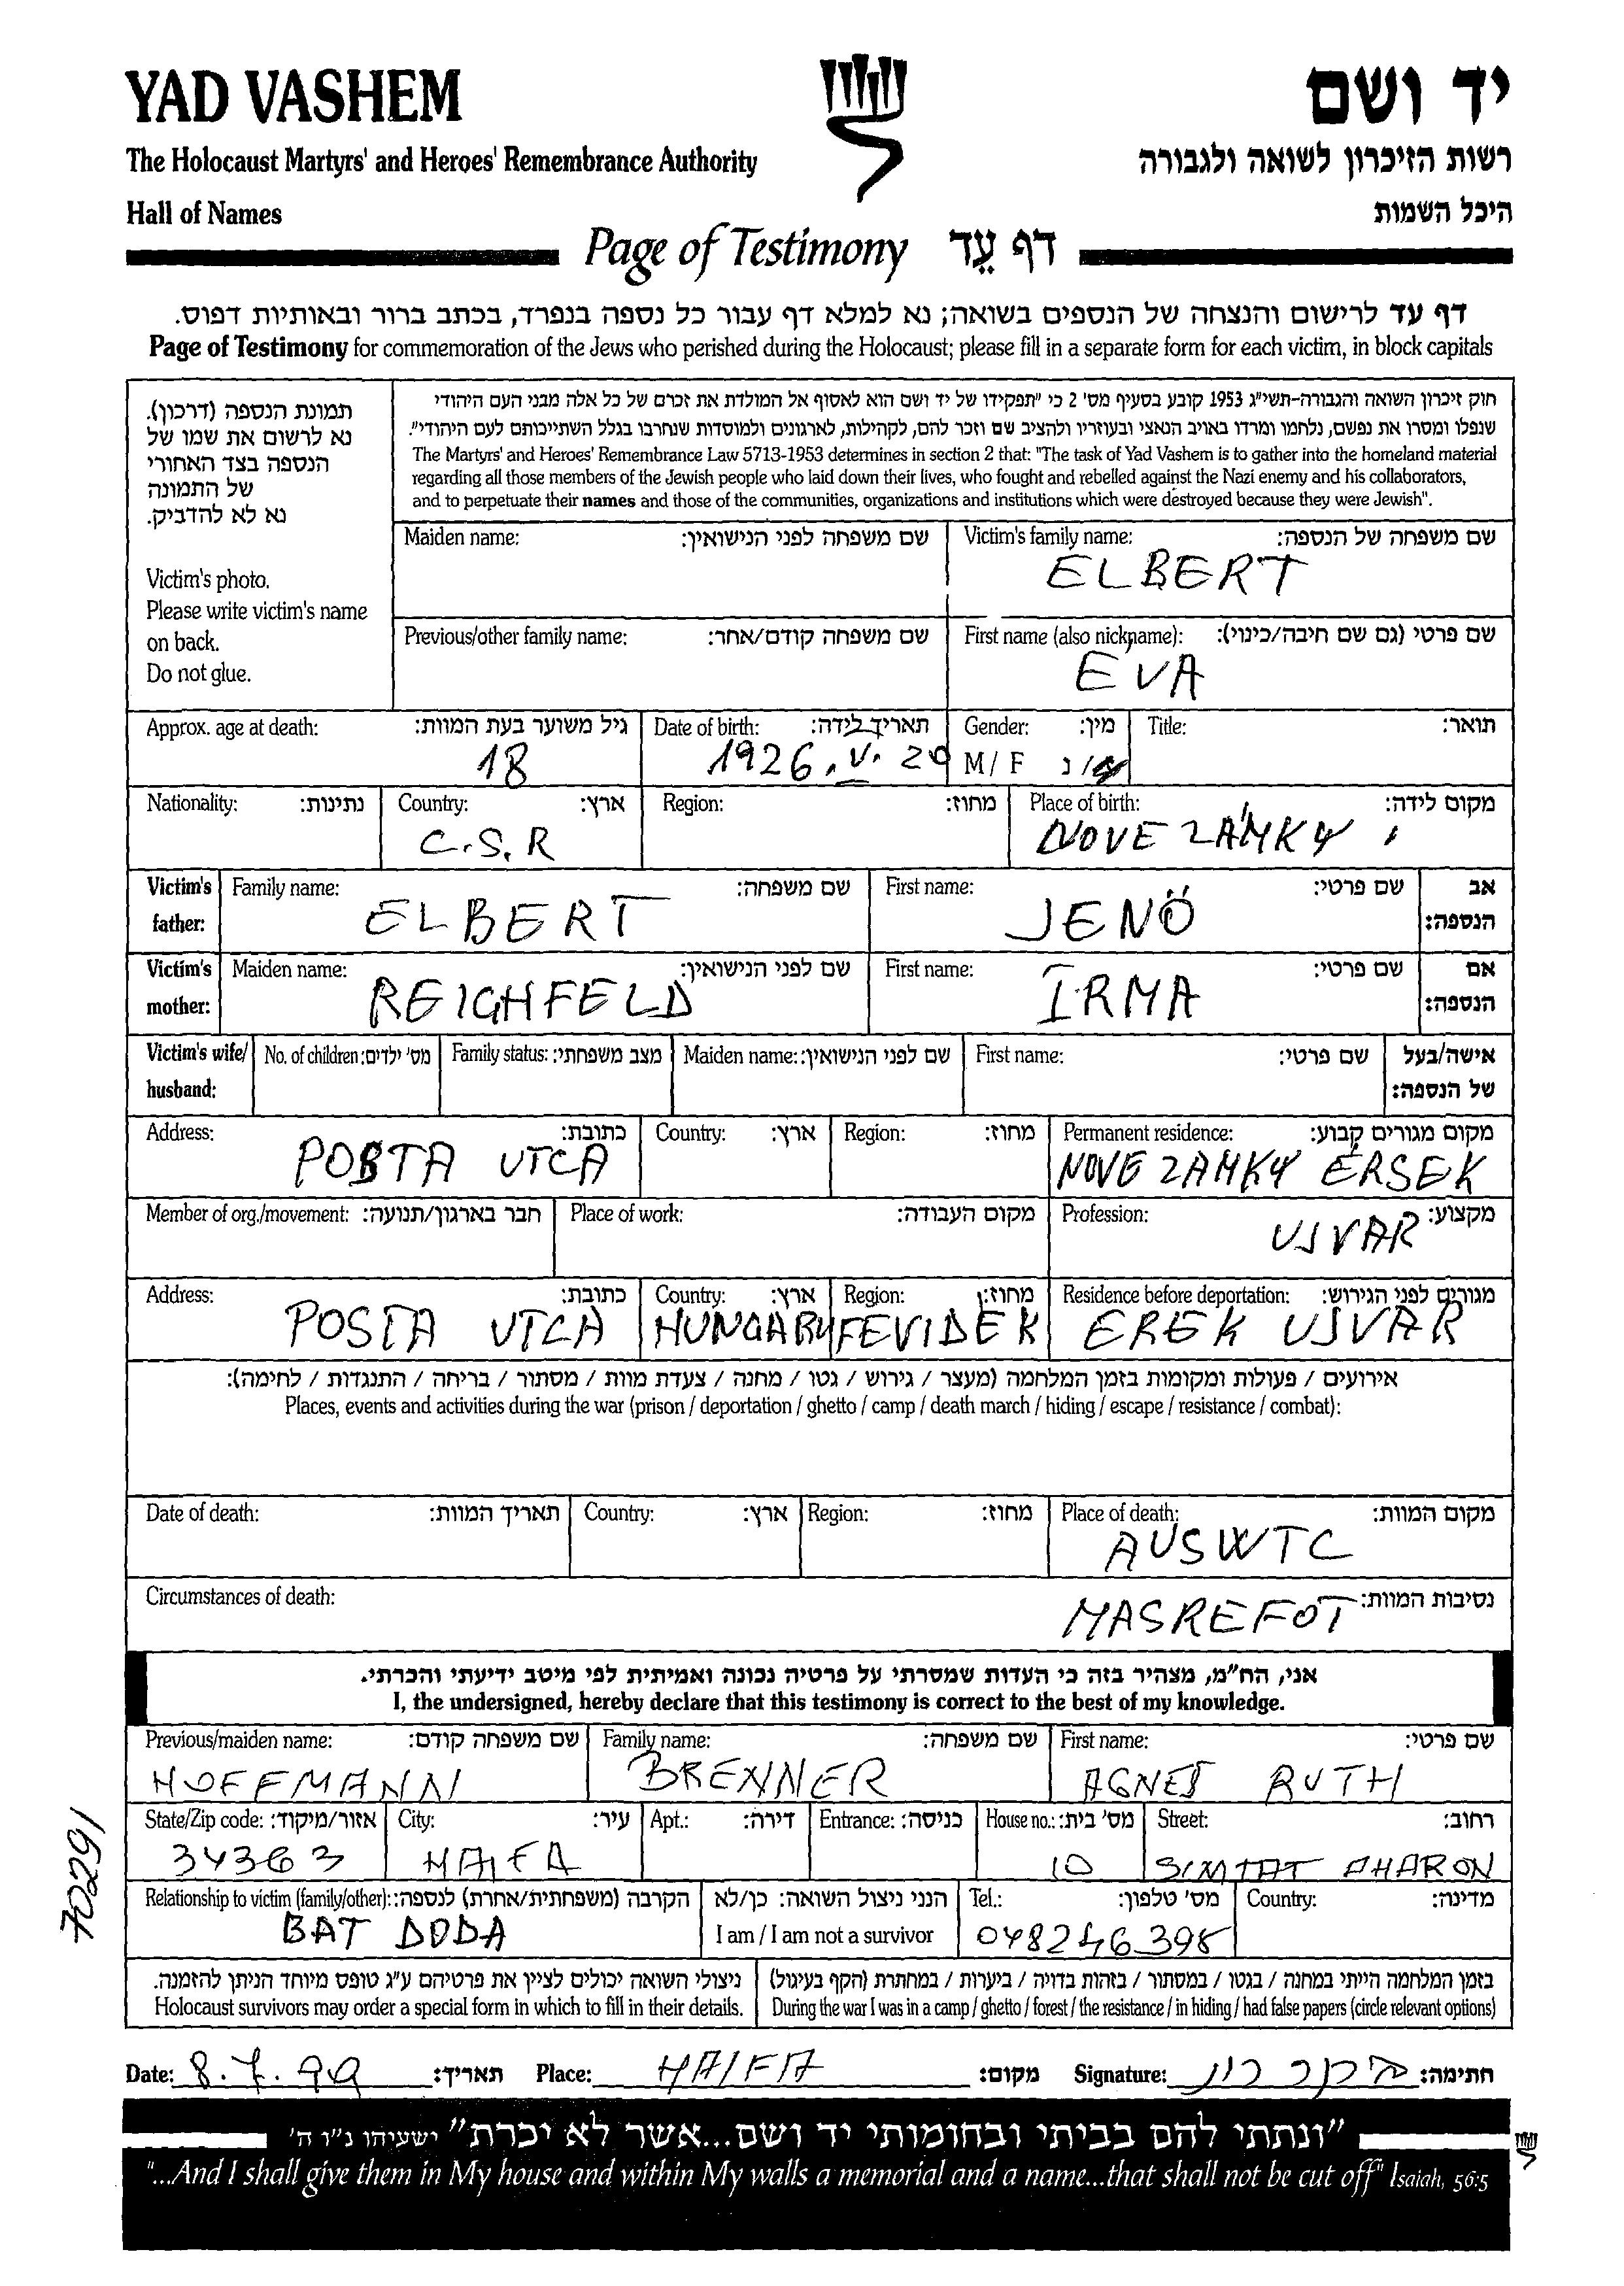 YAD VASHEM
יד ושם
The Holocaust Martyrs' and Heroes' Remembrance Authority
רשות הזיכרון לשואה ולגבורה
Hall of Names
היכל השמות
Page of Testimony דף עֵד
דף עד לרישום והנצחה של הנספים בשואה; נא למלא דף עבור כל נספה בנפרד, בכתב ברור ובאותיות דפוס.
Page of Testimony for commemoration of the Jews who perished during the Holocaust; please fill in a separate form for each victim, in block capitals
תמונת הנספה (דרכון).
נא לרשום את שמו של
הנספה בצד האחורי
של התמונה
נא לא להדביק.
Victim's photo.
Please write victim's name
on back.
Do not glue.
חוק זיכרון השואה והגבורה-תשי"ג 1953 קובע בסעיף מס' 2 כי "תפקידו של יד ושם הוא לאסוף אל המולדת את זכרם של כל אלה מבני העם היהודי
שנפלו ומסרו את נפשם, נלחמו ומרדו באויב הנאצי ובעוזריו ולהציב שם וזכר להם, לקהילות, לארגונים ולמוסדות שנחרבו בגלל השתייכותם לעם היהודי".
The Martyrs' and Heroes' Remembrance Law 5713-1953 determines in section 2 that: "The task of Yad Vashem is to gather into the homeland material
regarding all those members of the Jewish people who laid down their lives, who fought and rebelled against the Nazi enemy and his collaborators,
and to perpetuate their names and those of the communities, organizations and institutions which were destroyed because they were Jewish".
Maiden name: שם משפחה לפני הנישואין:
Victim's family name: שם משפחה של הנספה:
ELBERT
Previous/other family name: שם משפחה קודם/אחר:
First name (also nickname): שם פרטי (גם שם חיבה/כינוי):
EVA
Approx. age at death: גיל משוער בעת המוות:
18
Date of birth: תאריך לידה:
1926. V. 20
Gender: מין:
M / F
Title: תואר:
Nationality: נתינות:
Country: ארץ:
C.S.R
Region: מחוז:
Place of birth: מקום לידה:
NOVE ZÁMKY
Victim's father:
Family name: שם משפחה:
ELBERT
First name: שם פרטי:
JENÖ
אב הנספה:
Victim's mother:
Maiden name: שם לפני הנישואין:
REIGHFELD
First name: שם פרטי:
IRMA
אם הנספה:
Victim's wife/ husband:
No. of children: מס' ילדים:
Family status: מצב משפחתי:
Maiden name: שם לפני הנישואין:
First name: שם פרטי:
אישה/בעל של הנספה:
Address: כתובת:
POSTA UTCA
Country: ארץ:
Region: מחוז:
Permanent residence: מקום מגורים קבוע:
NOVE ZAMKY ÉRSEK
Member of org./movement: חבר בארגון/תנועה:
Place of work: מקום העבודה:
Profession: מקצוע:
UJVAR
Address: כתובת:
POSTA UTCA
Country: ארץ:
HUNGARY
Region: מחוז:
FEVIDEK
Residence before deportation: מגורים לפני הגירוש:
EREK UJVAR
אירועים / פעולות ומקומות בזמן המלחמה (מעצר / גירוש / גטו / מחנה / צעדת מוות / מסתור / בריחה / התנגדות / לחימה):
Places, events and activities during the war (prison / deportation / ghetto / camp / death march / hiding / escape / resistance / combat):
Date of death: תאריך המוות:
Country: ארץ:
Region: מחוז:
Place of death: מקום המוות:
AUSWTC
Circumstances of death: נסיבות המוות:
MASREFOT
אני, הח"מ, מצהיר בזה כי העדות שמסרתי על פרטיה נכונה ואמיתית לפי מיטב ידיעתי והכרתי.
I, the undersigned, hereby declare that this testimony is correct to the best of my knowledge.
Previous/maiden name: שם משפחה קודם:
HOFFMANN
Family name: שם משפחה:
BRENNER
First name: שם פרטי:
AGNES RUTH
State/Zip code: אזור/מיקוד:
34363
City: עיר:
HAIFA
Apt.: דירה:
Entrance: כניסה:
House no.: מס' בית:
10
Street: רחוב:
SIMTAT AHARON
Relationship to victim (family/other): הקרבה (משפחתית/אחרת) לנספה:
BAT DODA
הנני ניצול השואה: כן/לא
I am / I am not a survivor
Tel.: מס' טלפון:
048246398
Country: מדינה:
ניצולי השואה יכולים לציין את פרטיהם ע"ג טופס מיוחד הניתן להזמנה.
Holocaust survivors may order a special form in which to fill in their details.
בזמן המלחמה הייתי במחנה / בגטו / במסתור / בזהות בדויה / ביערות / במחתרת (הקף בעיגול)
During the war I was in a camp / ghetto / forest / the resistance / in hiding / had false papers (circle relevant options)
70291
Date: 8.7.99 תאריך: Place: HAIFA מקום: Signature: ברנר רות חתימה:
"ונתתי להם בביתי ובחומותי יד ושם...אשר לא יכרת" ישעיהו נ"ו ה'
"...And I shall give them in My house and within My walls a memorial and a name...that shall not be cut off" Isaiah, 56:5